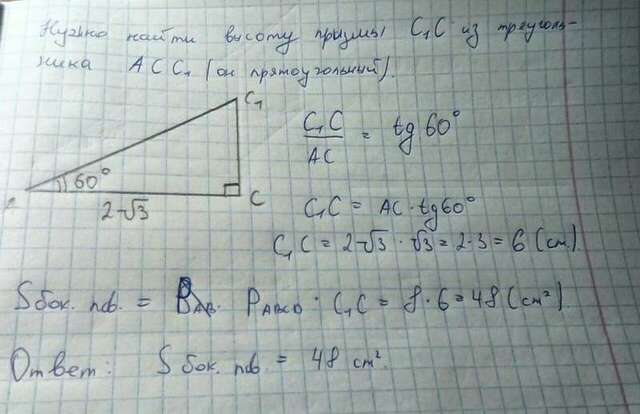 Нужно найти высоту призмы C₁C из треуголь-
ника ACC₁ (он прямоугольный).
C₁
C₁C/AC = tg 60°
60°
C
2√3
C₁C = AC · tg60°
C₁C = 2√3 · √3 = 2·3 = 6 (см)
Sбок. пов. = PABCD · C₁C = 8 · 6 = 48 (см²).
Ответ: Sбок. пов. = 48 см².